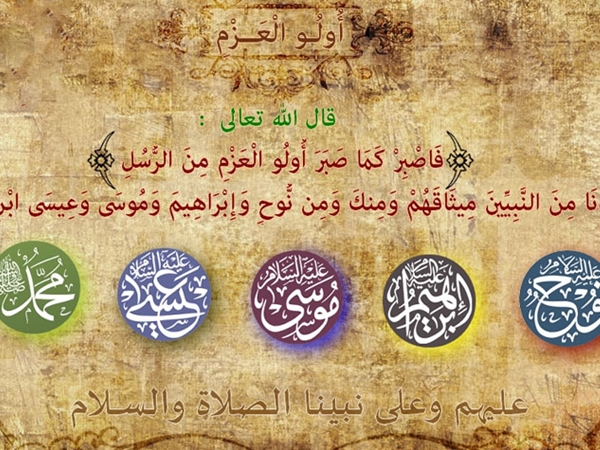 أُولُو الْعَزْم
قال الله تعالى :
فَاصْبِرْ كَمَا صَبَرَ أُولُو الْعَزْم مِنَ الرُّسُلِ
نَا مِنَ النَّبِيِّينَ مِيثَاقَهُمْ وَمِنكَ وَمِن نُّوحٍ وَإِبْرَاهِيمَ وَمُوسَى وَعِيسَى ابْر
نوح عليه السلام
إبراهيم عليه السلام
موسى عليه السلام
عيسى عليه السلام
محمد ﷺ
عليهم وعلى نبينا الصلاة والسلام